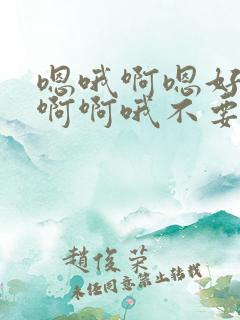 嗯哦啊嗯好
啊啊哦不要
趙俊荣
未经同意禁止转载